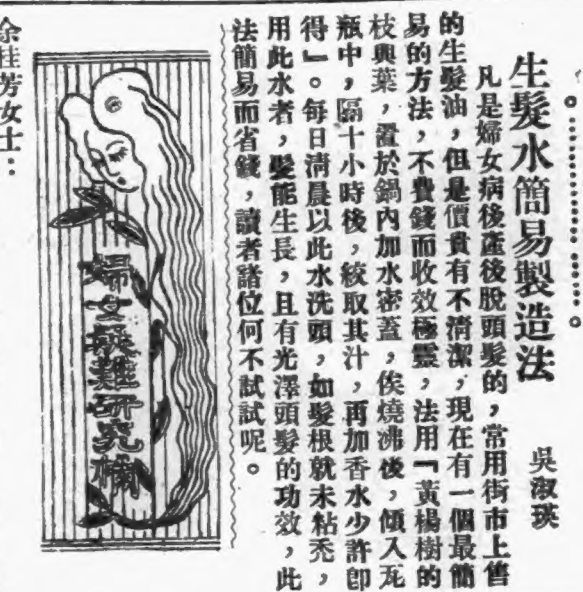 生髮水簡易製造法
吳淑瑛
凡是婦女病後產後脫頭髮的，常用街市上售
的生髮油，但是價貴有不清潔，現在有一個最簡
易的方法，不費錢而收效極靈，法用『黃楊樹的
枝與葉，置於鍋內加水密蓋，俟燒沸後，傾入瓦
瓶中，隔十小時後，絞取其汁，再加香水少許卽
得』。每日清晨以此水洗頭，如髮根就未粘禿，
用此水者，髮能生長，且有光澤頭髮的功效，此
法簡易而省錢，讀者諸位何不試試呢。
婦女疑難研究欄
余桂芳女士：